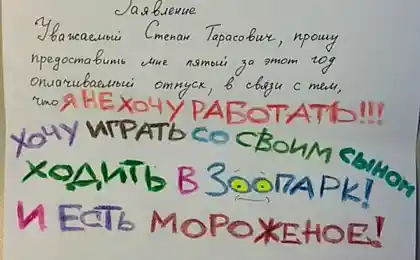 Заявление
Уважаемый Степан Тарасович, прошу
предоставить мне пятый за этот год
оплачиваемый отпуск, в связи с тем,
что Я НЕ ХОЧУ РАБОТАТЬ!!!
ХОЧУ ИГРАТЬ СО СВОИМ СЫНОМ
ХОДИТЬ В ЗООПАРК!
И ЕСТЬ МОРОЖЕНОЕ!